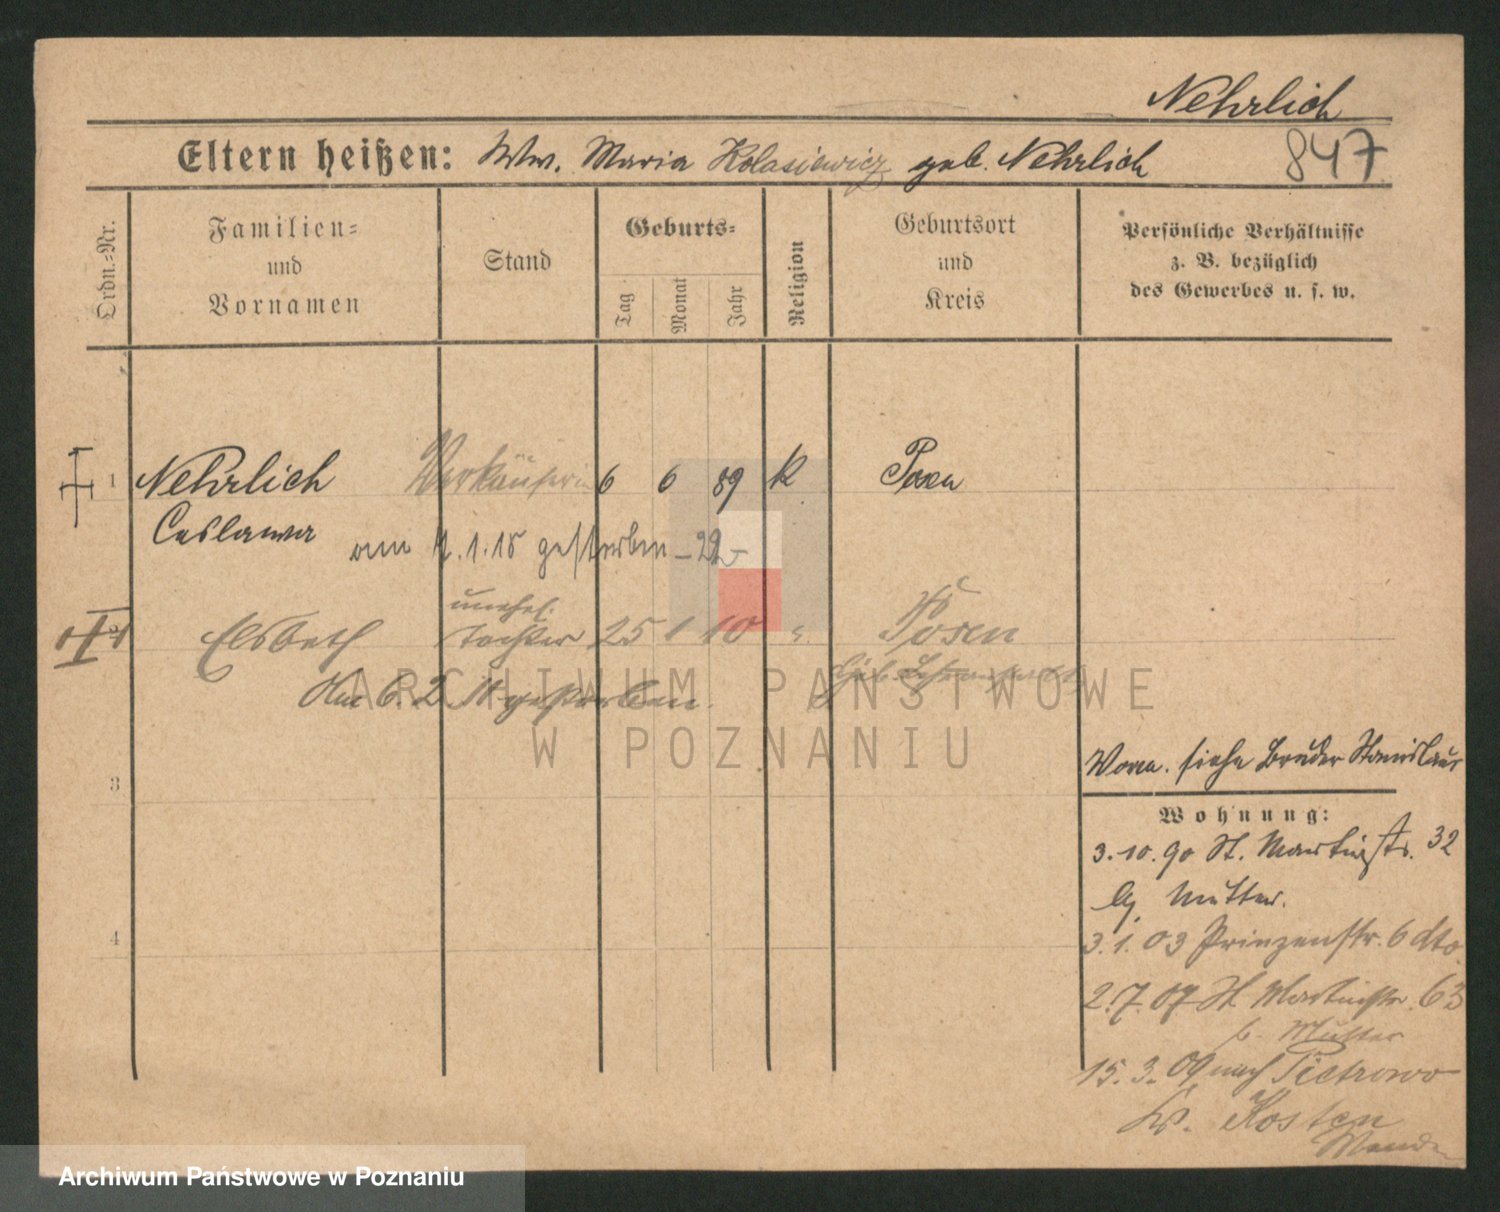 Nehrlich
Eltern heißen: Ww. Maria Kolasiewicz geb. Nehrlich
847
Ordn.-Nr.
Familien-
und
Vornamen
Stand
Geburts-
Tag
Monat
Jahr
Religion
Geburtsort
und
Kreis
Persönliche Verhältnisse
z. B. bezüglich
des Gewerbes u. s. w.
1 Nehrlich Verkäuferin 6 6 89 k Posen
Ceslawa
am 4.1.15 gestorben -29-
unehel.
2 Elsbeth Tochter 25 1 10 Posen
Am 6. 2. 11 gestorben.
3
4
siehe Bruder Stanislaus
Wohnung:
3.10.90 St. Martinstr. 32
b. Mutter.
3.1.03 Prinzenstr. 6 dto
2.7.07 St. Martinstr. 63
b. Mutter
15.3.09 nach Pietrowo
Kr. Kosten
ARCHIWUM PAŃSTWOWE
W POZNANIU
Archiwum Państwowe w Poznaniu